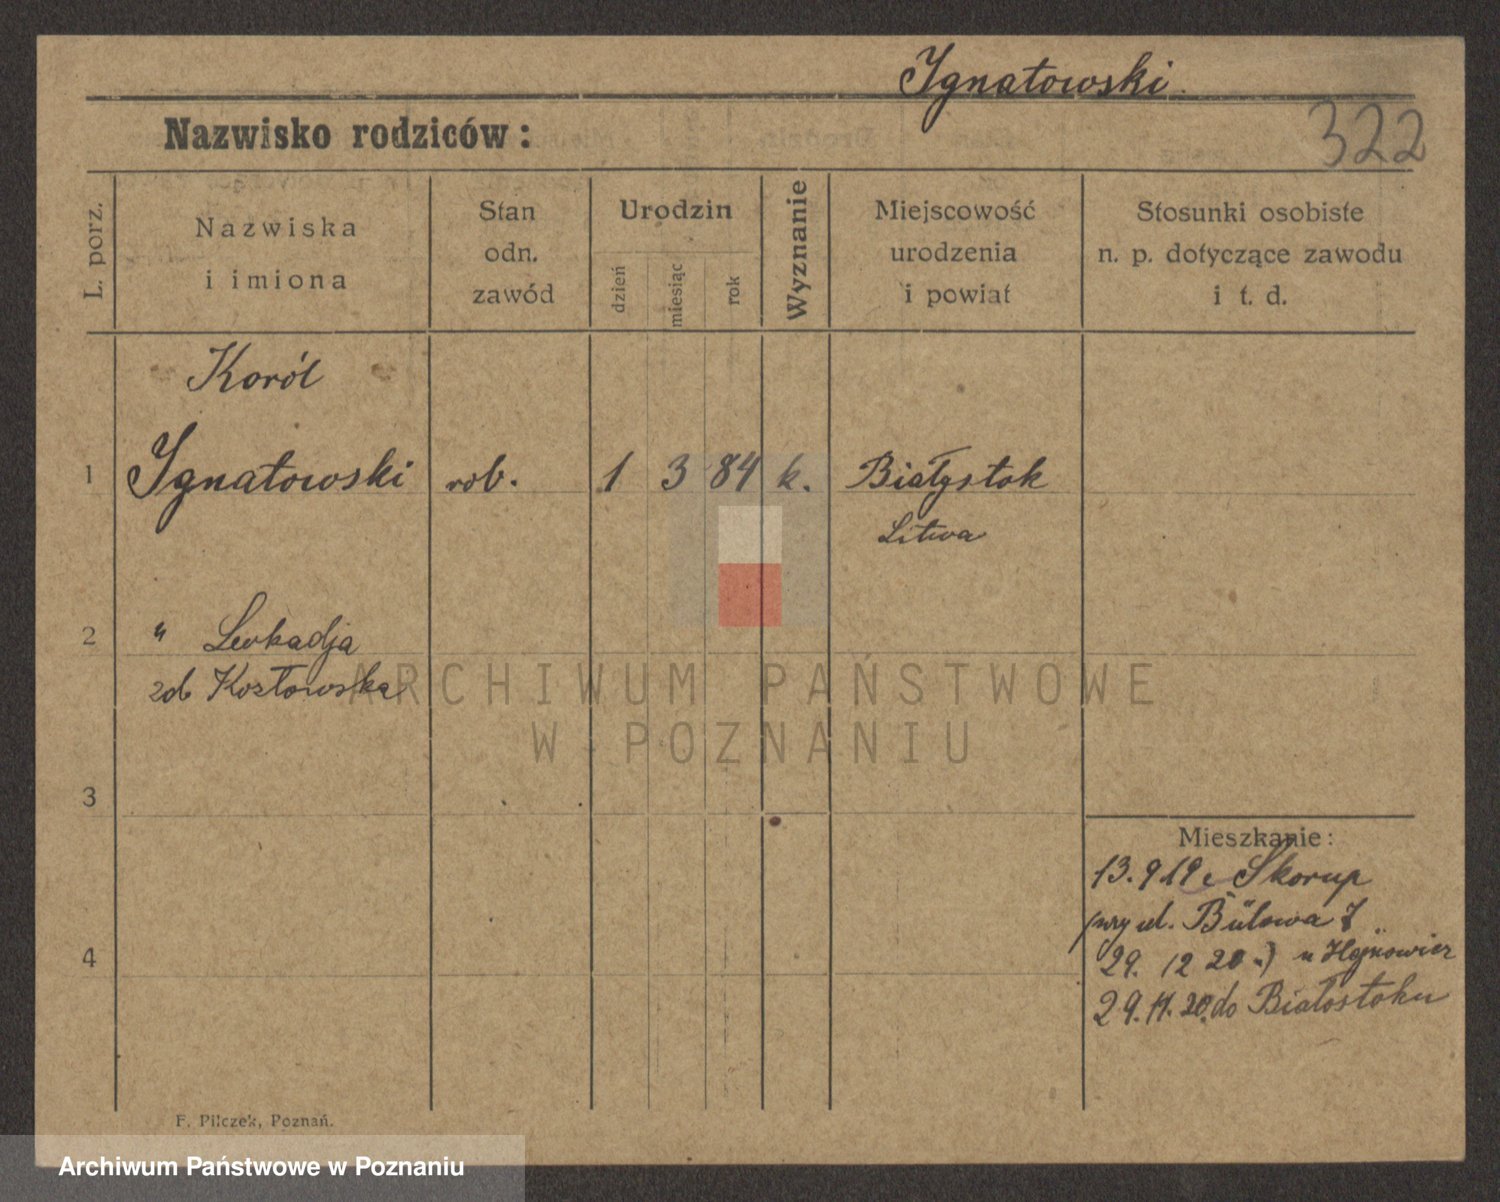 Ignatowski.
322
Nazwisko rodziców:
L. porz.
Nazwiska
i imiona
Stan
odn.
zawód
Urodzin
dzień
miesiąc
rok
Wyznanie
Miejscowość
urodzenia
i powiat
Stosunki osobiste
n. p. dotyczące zawodu
i t. d.
Koról
1 Ignatowski rob. 1 3 84 k. Białystok
Litwa
2 " Leokadja
zd Kozłowska
ARCHIWUM PAŃSTWOWE
W POZNANIU
3
Mieszkanie:
13.9.19 Skorup
przy ul. Bülowa 7
4
29. 12 20
29. 11. 20. do Białostoku
F. Pilczek, Poznań.
Archiwum Państwowe w Poznaniu